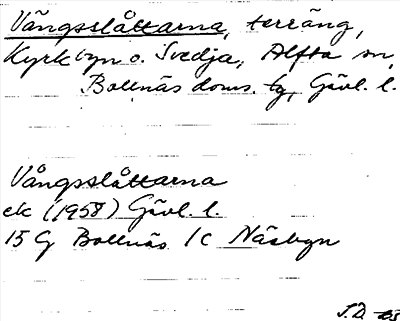 Vångsslåttarna, terräng,
Kyrkbyn o. Svedja, Alfta sn,
Bollnäs doms. tg, Gävl. l.
Vångsslåttarna
ek (1958) Gävl. l.
15 G Bollnäs 1c Näsbyn
J.D.